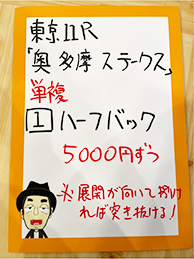 東京11R
「奥多摩ステークス」
単複
1 ハーフバック
5000円ずつ
※展開が向いておけ
れば突き抜ける!